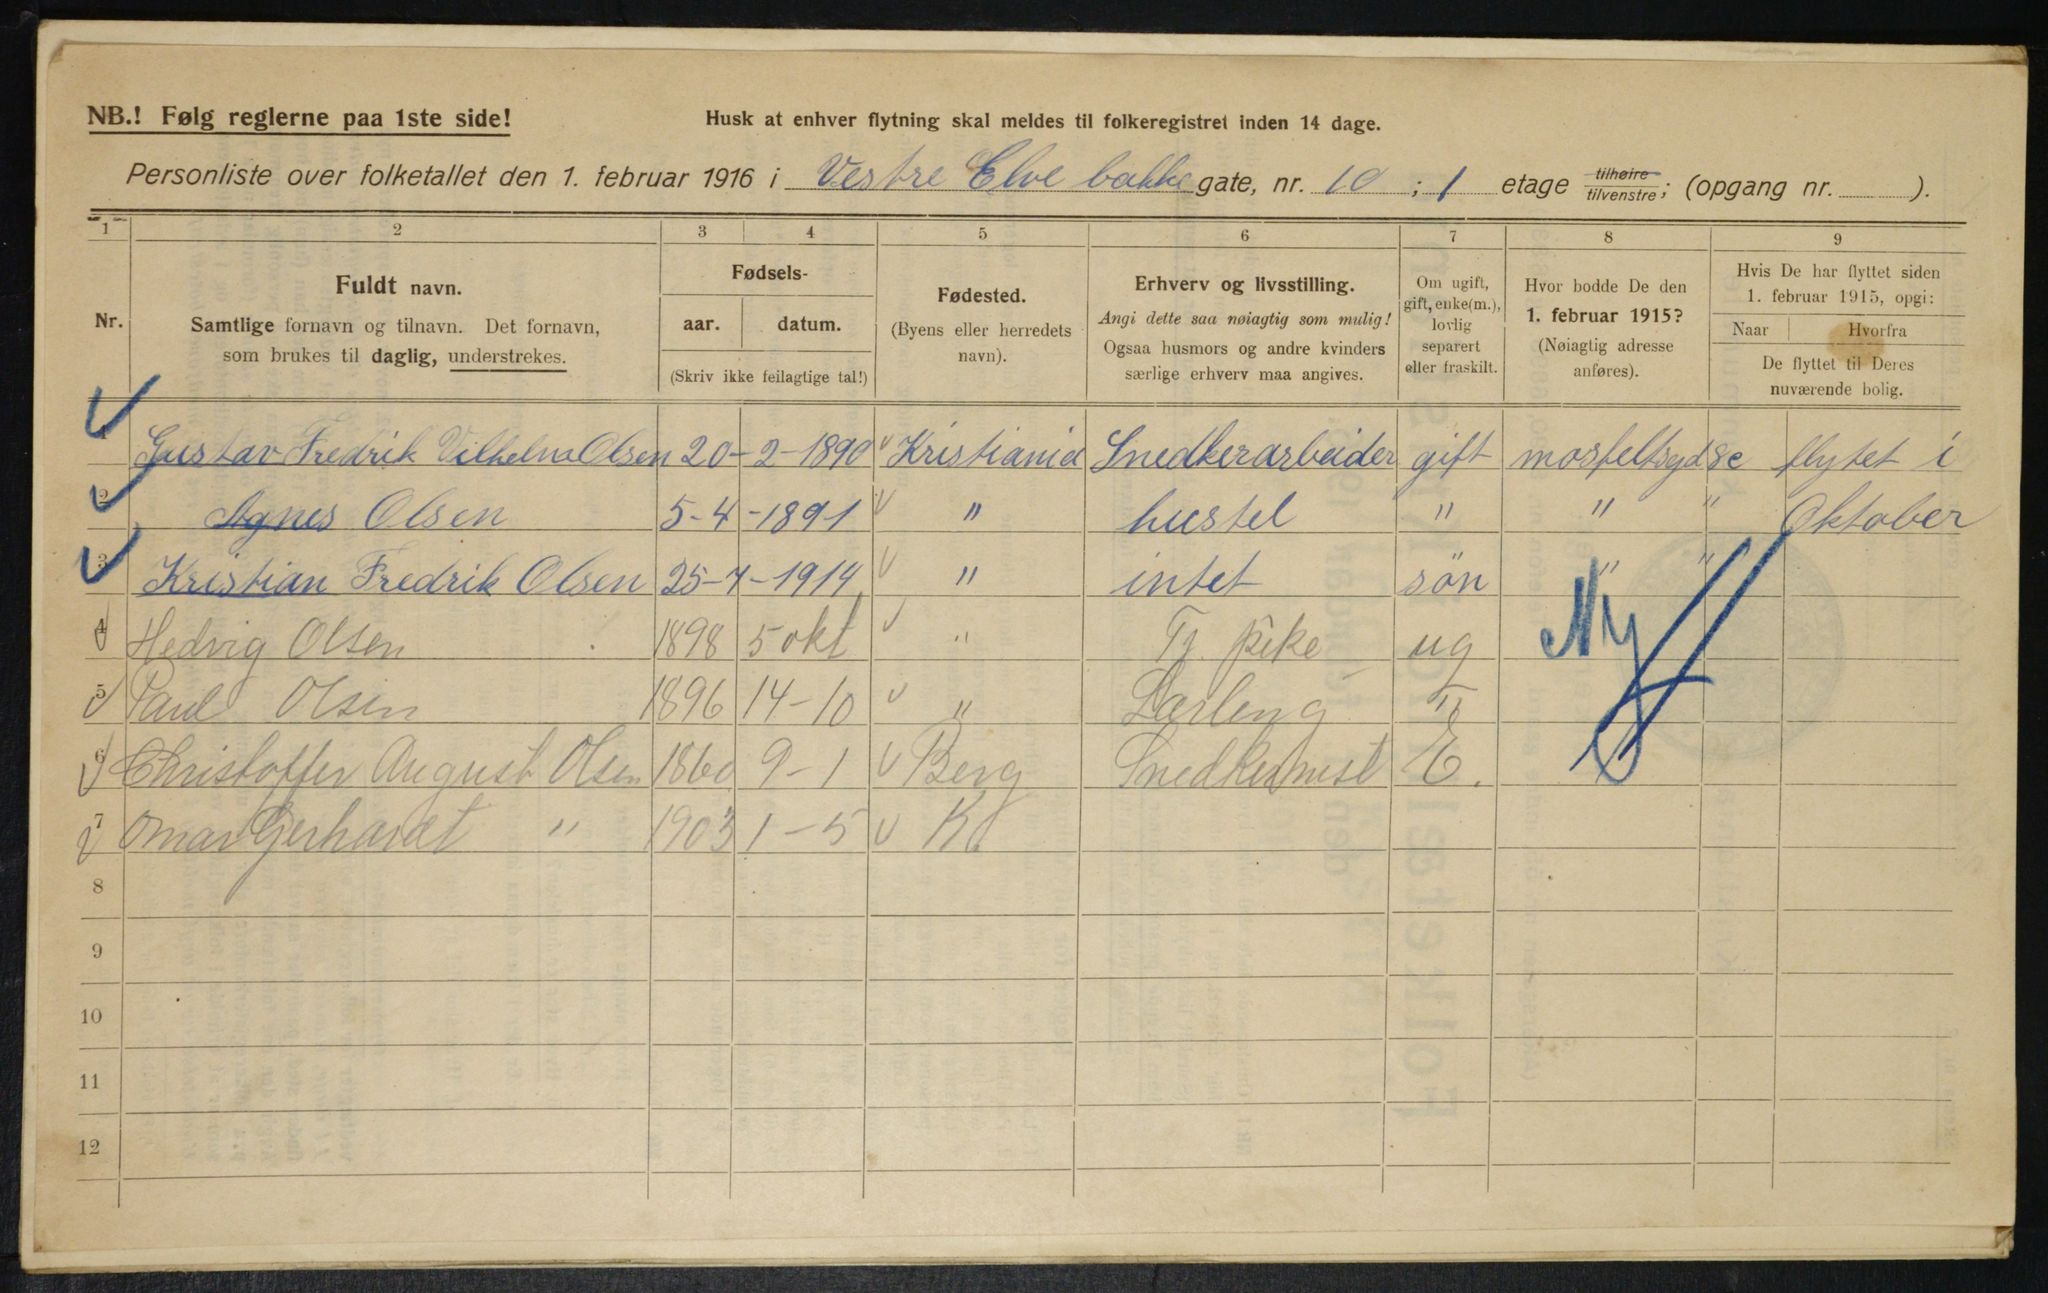 NB.! Følg reglerne paa 1ste side!
Husk at enhver flytning skal meldes til folkeregistret inden 14 dage.
Personliste over folketallet den 1. februar 1916 i Vestre Elve bakke gate, nr. 10 ; 1 etage tilhøire/tilvenstre; (opgang nr. ).
1 2 3 4 5 6 7 8 9
Nr.
Fuldt navn.
Samtlige fornavn og tilnavn. Det fornavn,
som brukes til daglig, understrekes.
Fødsels-
aar. datum.
(Skriv ikke feilagtige tal!)
Fødested.
(Byens eller herredets
navn).
Erhverv og livsstilling.
Angi dette saa nøiagtig som mulig!
Ogsaa husmors og andre kvinders
særlige erhverv maa angives.
Om ugift,
gift, enke(m.),
lovlig
separert
eller fraskilt.
Hvor bodde De den
1. februar 1915?
(Nøiagtig adresse
anføres).
Hvis De har flyttet siden
1. februar 1915, opgi:
Naar Hvorfra
De flyttet til Deres
nuværende bolig.
1 Gustav Fredrik Vilhelm Olsen 20-2-1890 Kristiania Snedkerarbeider gift flytet i
2 Agnes Olsen 5-4-1891 " hustel " " " Oktober
3 Kristian Fredrik Olsen 25-7-1914 " intet søn " "
Ny
4 Hedvig Olsen 1898 5 okt " Tj. pike ug
5 Paul Olsen 1896 14-10 " Lærling "
6 Christoffer August Olsen 1860 9-1 Berg Snedkermest E.
7 Omar Gerhardt " 1903 1-5 K
8
9
10
11
12